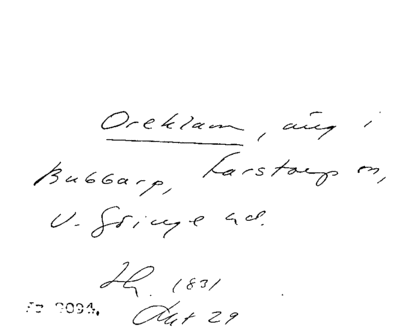 Oreklam, äng i
Bubbarp, Farstorps sn,
V. Göinge hd.
Lh. 1831
Akt 29